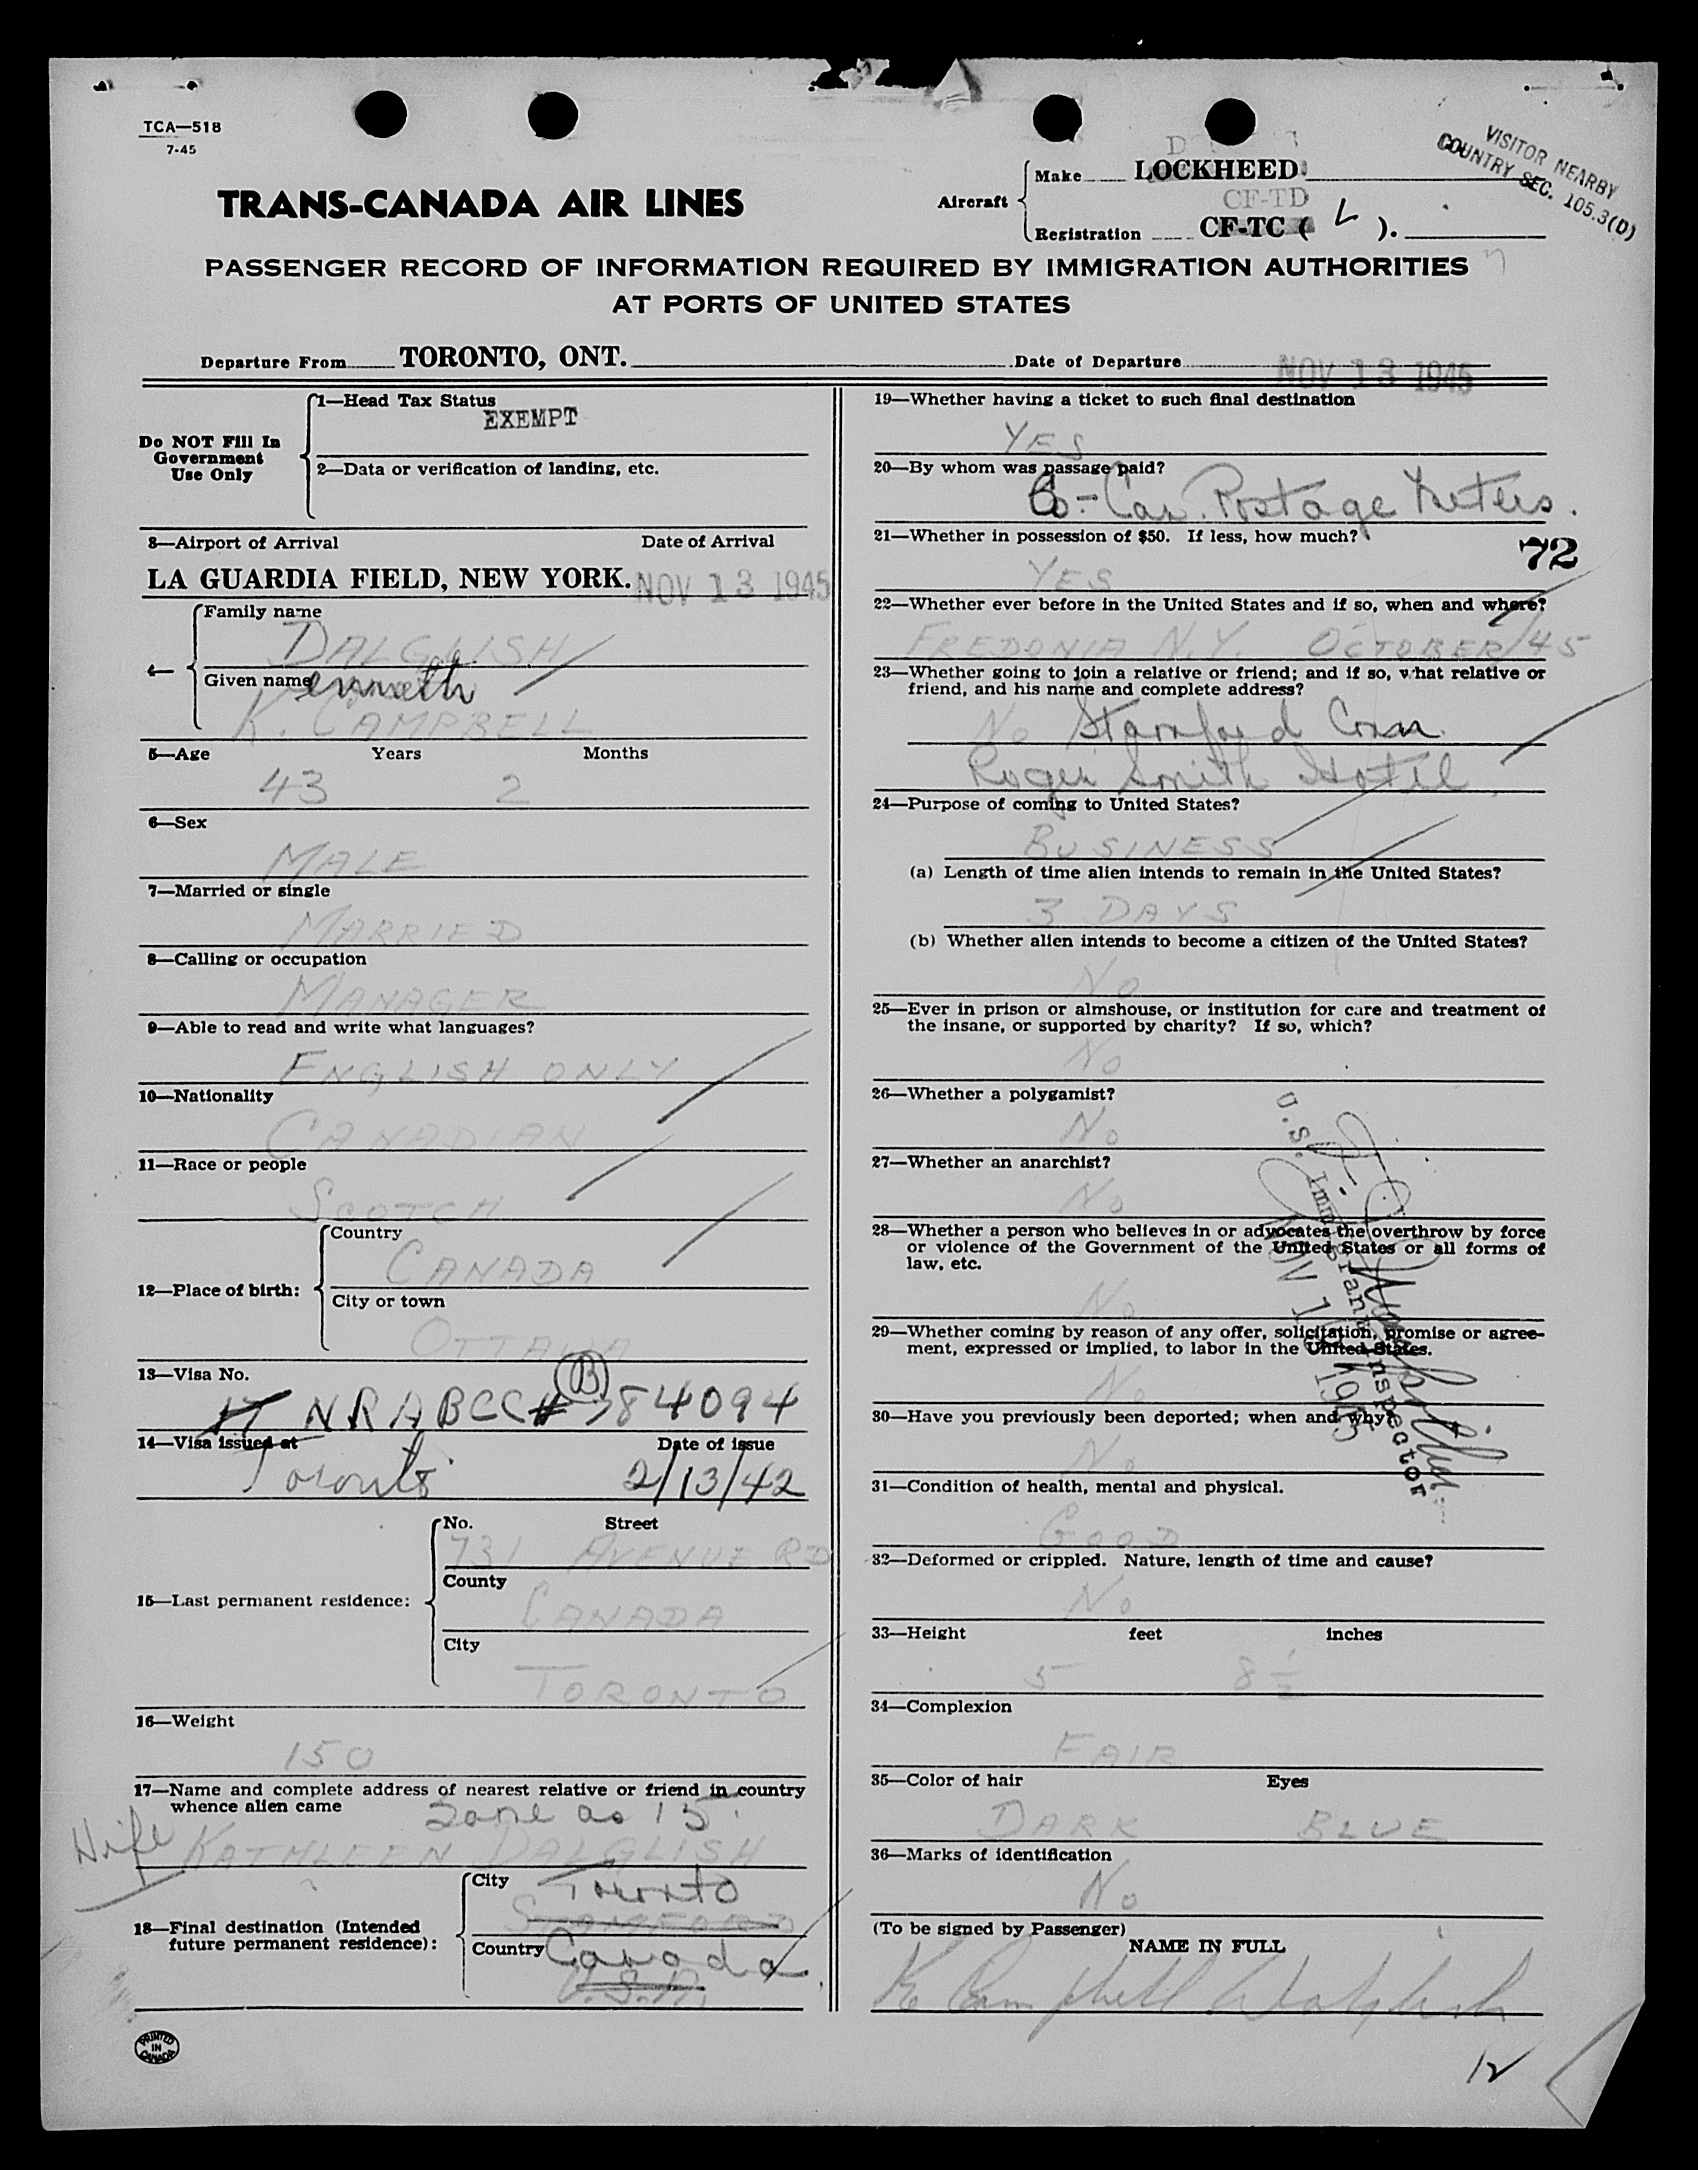 TCA—518
7-45
VISITOR NEARBY
COUNTRY SEC. 105.3(D)
TRANS-CANADA AIR LINES
Aircraft
Make LOCKHEED
CF-TD
Registration CF-TC ( L ).
PASSENGER RECORD OF INFORMATION REQUIRED BY IMMIGRATION AUTHORITIES
AT PORTS OF UNITED STATES
Departure From TORONTO, ONT. Date of Departure NOV 13 1945
Do NOT Fill In
Government
Use Only
1—Head Tax Status
EXEMPT
2—Data or verification of landing, etc.
3—Airport of Arrival Date of Arrival
LA GUARDIA FIELD, NEW YORK. NOV 13 1945
4—
Family name
DALGLISH
Given name
enneth
K. CAMPBELL
5—Age Years Months
43 2
6—Sex
MALE
7—Married or single
MARRIED
8—Calling or occupation
MANAGER
9—Able to read and write what languages?
ENGLISH ONLY
10—Nationality
CANADIAN
11—Race or people
SCOTCH
12—Place of birth:
Country
CANADA
City or town
OTTAWA
13—Visa No.
NRABCC# B 384094
14—Visa issued at Date of issue
Toronto 2/13/42
15—Last permanent residence:
No. Street
731 AVENUE RD
County
CANADA
City
TORONTO
16—Weight
150
17—Name and complete address of nearest relative or friend in country
whence alien came Same as 15.
Wife KATHLEEN DALGLISH
18—Final destination (Intended
future permanent residence):
City Toronto
STAMFORD
Country Canada
U.S.A.
PRINTED
IN
CANADA
19—Whether having a ticket to such final destination
YES
20—By whom was passage paid?
Co- Can. Postage Meters.
21—Whether in possession of $50. If less, how much?
72
YES
22—Whether ever before in the United States and if so, when and where?
FREDONIA N.Y. OCTOBER/45
23—Whether going to join a relative or friend; and if so, what relative or
friend, and his name and complete address?
No Stamford Conn.
Roger Smith Hotel.
24—Purpose of coming to United States?
BUSINESS
(a) Length of time alien intends to remain in the United States?
3 DAYS
(b) Whether alien intends to become a citizen of the United States?
No
25—Ever in prison or almshouse, or institution for care and treatment of
the insane, or supported by charity? If so, which?
No
26—Whether a polygamist?
No
27—Whether an anarchist?
No
28—Whether a person who believes in or advocates the overthrow by force
or violence of the Government of the United States or all forms of
law, etc.
No
29—Whether coming by reason of any offer, solicitation, promise or agree-
ment, expressed or implied, to labor in the United States.
No
30—Have you previously been deported; when and why?
No
U.S. Immigrant Inspector
31—Condition of health, mental and physical.
GOOD
32—Deformed or crippled. Nature, length of time and cause?
No
33—Height feet inches
5 8 1/2
34—Complexion
FAIR
35—Color of hair Eyes
DARK BLUE
36—Marks of identification
No
(To be signed by Passenger)
NAME IN FULL
K. Campbell Dalglish
12